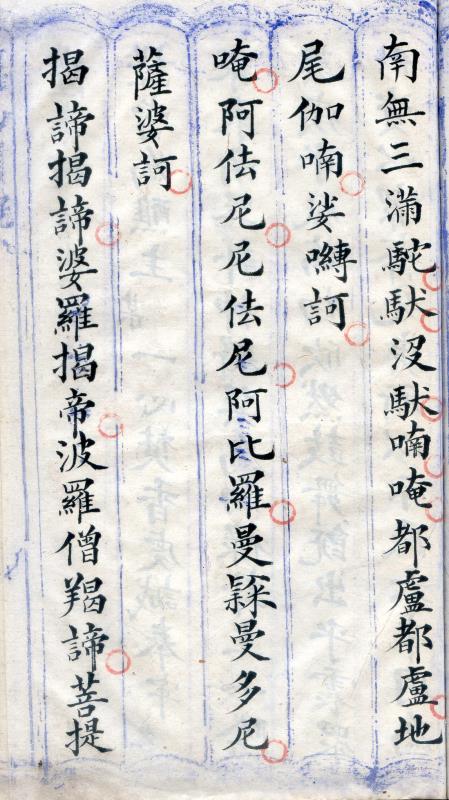 南無三滿馱馱没馱喃唵都盧都盧地
尾伽喃娑囀訶
唵阿佉尼尼佉尼阿比羅曼多尼
薩婆訶
揭諦揭諦婆羅揭帝波羅僧羯諦菩提